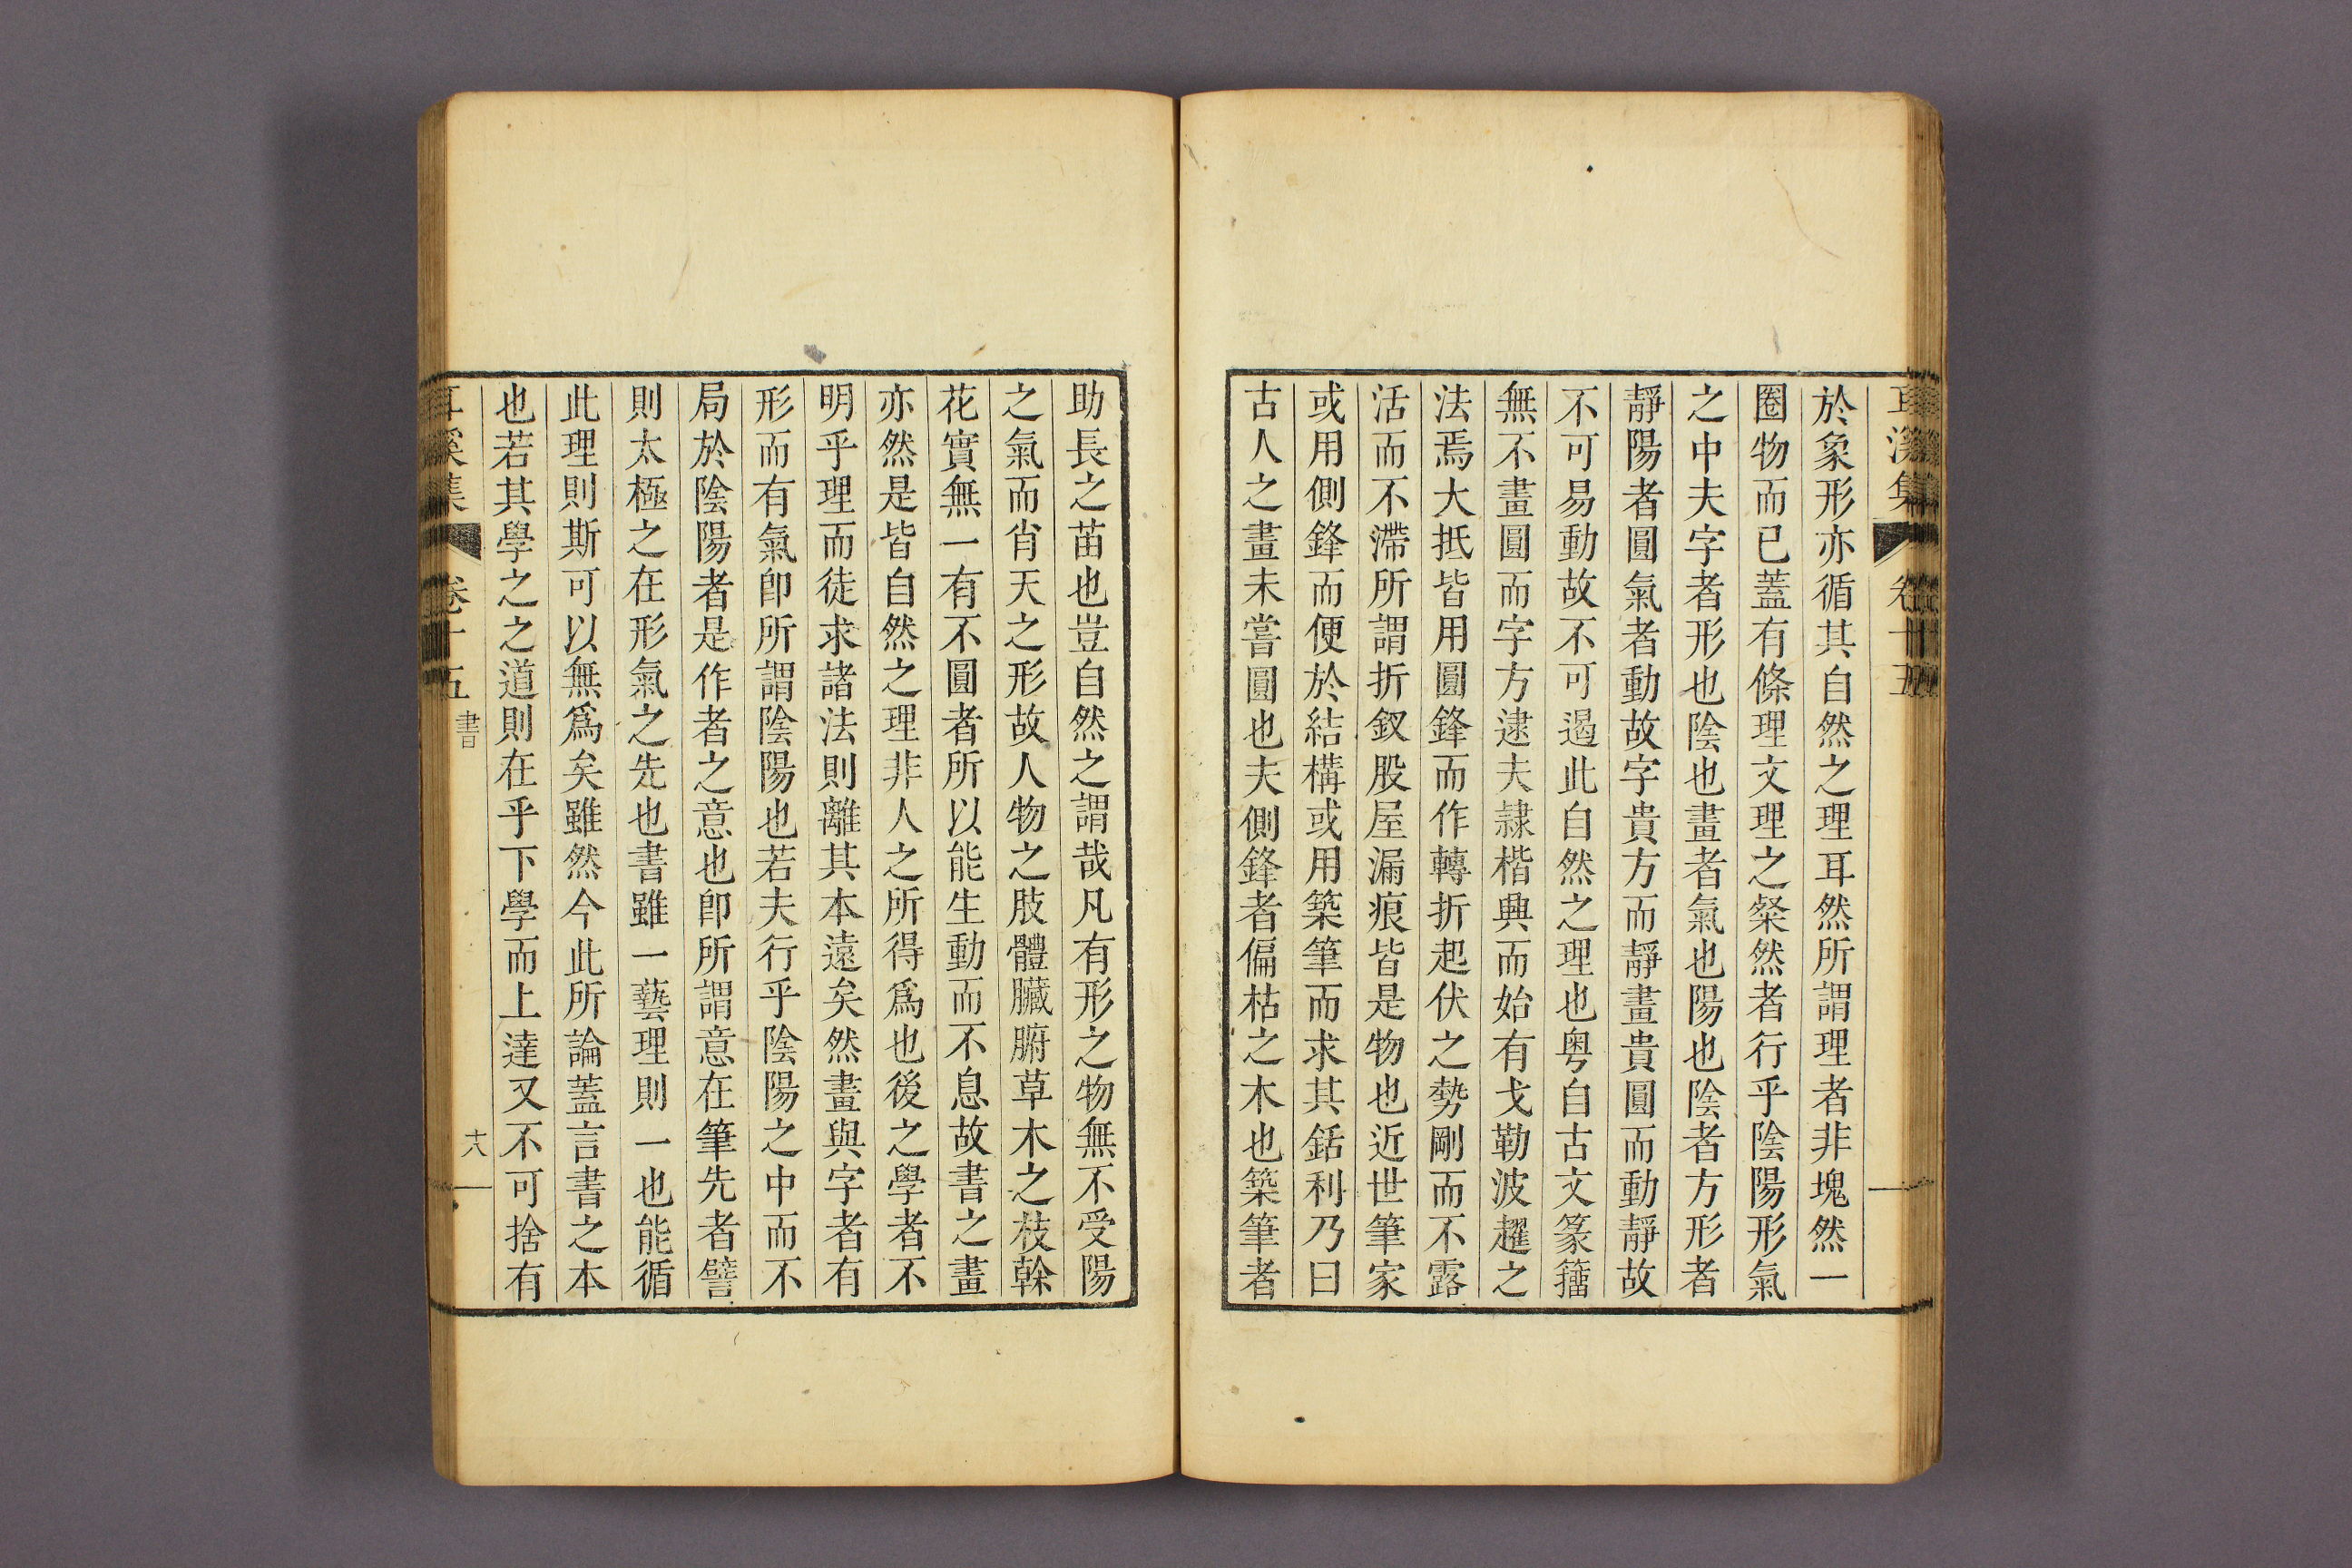 耳溪集 卷十五
於象形亦循其自然之理耳然所謂理者非塊然一
圈物而已蓋有條理文理之粲然者行乎陰陽形氣
之中夫字者形也陰也畫者氣也陽也陰者方形者
靜陽者圓氣者動故字貴方而靜畫貴圓而動靜故
不可易動故不可遏此自然之理也粤自古文篆籒
無不畫圓而字方逮夫隷楷興而始有戈勒波趯之
法焉大抵皆用圓鋒而作轉折起伏之勢剛而不露
活而不滯所謂折釵股屋漏痕皆是物也近世筆家
或用側鋒而便於結構或用築筆而求其銛利乃曰
古人之畫未嘗圓也夫側鋒者偏枯之木也築筆者
助長之苗也豈自然之謂哉凡有形之物無不受陽
之氣而肖天之形故人物之肢體臟腑草木之枝榦
花實無一有不圓者所以能生動而不息故書之畫
亦然是皆自然之理非人之所得爲也後之學者不
明乎理而徒求諸法則離其本遠矣然畫與字者有
形而有氣卽所謂陰陽也若夫行乎陰陽之中而不
局於陰陽者是作者之意也卽所謂意在筆先者譬
則太極之在形氣之先也書雖一藝理則一也能循
此理則斯可以無爲矣雖然今此所論蓋言書之本
也若其學之之道則在乎下學而上達又不可捨有
耳溪集 卷十五 書 十八